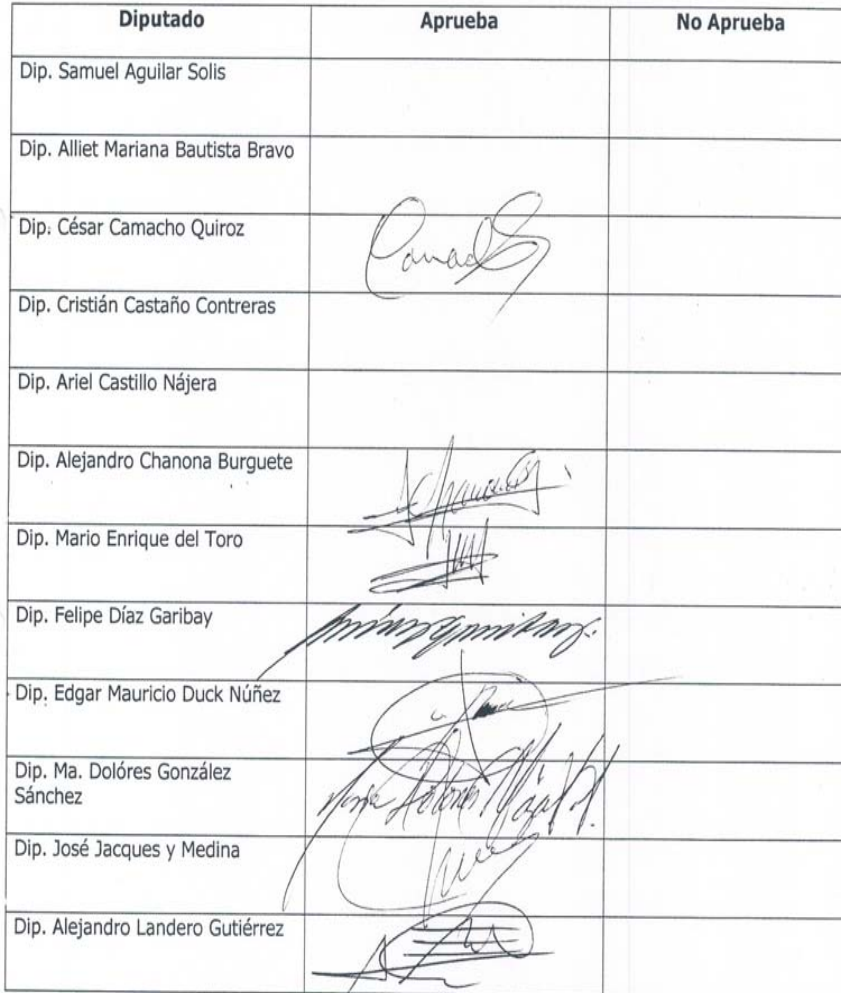 Diputado Aprueba No Aprueba
Dip. Samuel Aguilar Solis
Dip. Alliet Mariana Bautista Bravo
Dip. César Camacho Quiroz
Dip. Cristián Castaño Contreras
Dip. Ariel Castillo Nájera
Dip. Alejandro Chanona Burguete
Dip. Mario Enrique del Toro
Dip. Felipe Díaz Garibay
Dip. Edgar Mauricio Duck Núñez
Dip. Ma. Dolóres González
Sánchez
Dip. José Jacques y Medina
Dip. Alejandro Landero Gutiérrez